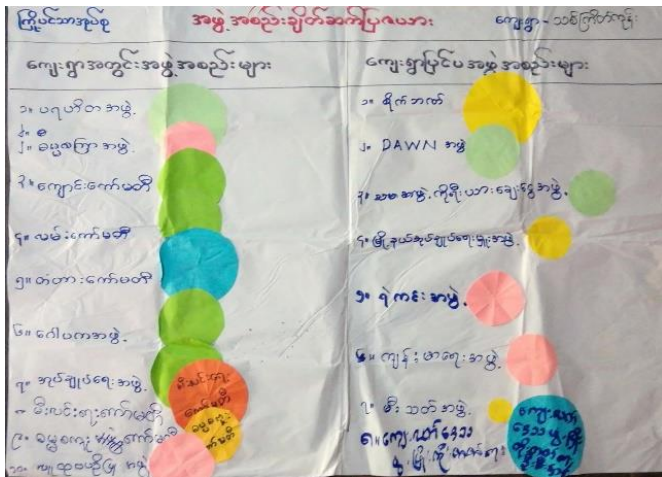 ကြိုပင်သာအုပ်စု
အဖွဲ့အစည်းချိတ်ဆက်ပြဇယား
ကျေးရွာ -
ကျေးရွာအတွင်းအဖွဲ့အစည်းများ
ကျေးရွာပြင်ပအဖွဲ့အစည်းများ
၁။ ပရဟိတအဖွဲ့
၂။ ဓမ္မစကြာအဖွဲ့
၃။ ကျောင်းကော်မတီ
၄။ လမ်းကော်မတီ
၅။ တံတားကော်မတီ
၆။ ဂေါပကအဖွဲ့
၇။ အုပ်ချုပ်ရေးအဖွဲ့
၈ မီးလင်းရေးကော်မတီ
၉။ ဓမ္မစကူး ကော်မတီ
၁၀။ အဖွဲ့
မီးလင်းရေး
ကော်မတီ
ဓမ္မစကူး
ကော်မတီ
၁။ စိုက်ဘဏ်
၂။ DAWN အဖွဲ့
၃။ အဖွဲ့၊ ကိုရီးယားချေးငွေအဖွဲ့
၄။ မြို့နယ်အုပ်ချုပ်ရေးမှူးအဖွဲ့
၅။ ရဲကင်းအဖွဲ့
၆။ ကျန်းမာရေးအဖွဲ့
၇။ မီးသတ်အဖွဲ့
၈။ ကျေးလက်ဒေသ
ဖွံ့ဖြိုးတိုးတက်ရေး
ကျေးလက်
ဒေသဖွံ့ဖြိုး
တိုးတက်ရေး